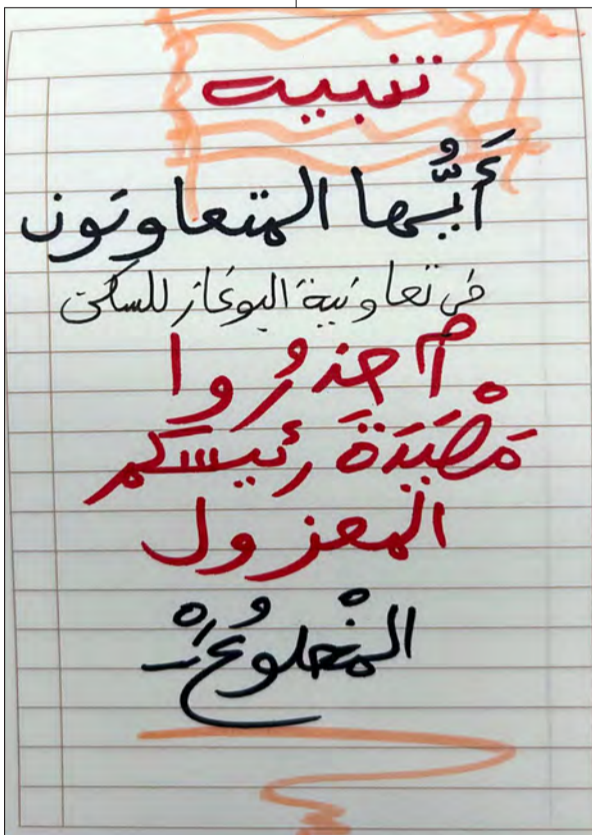 تنبيه
أَيُّها المتعاونون
في تعاونية البوغاز للسكن
احذرُوا
مَصْيَدَةَ رئيسكم
المعزول
المخْلوُع